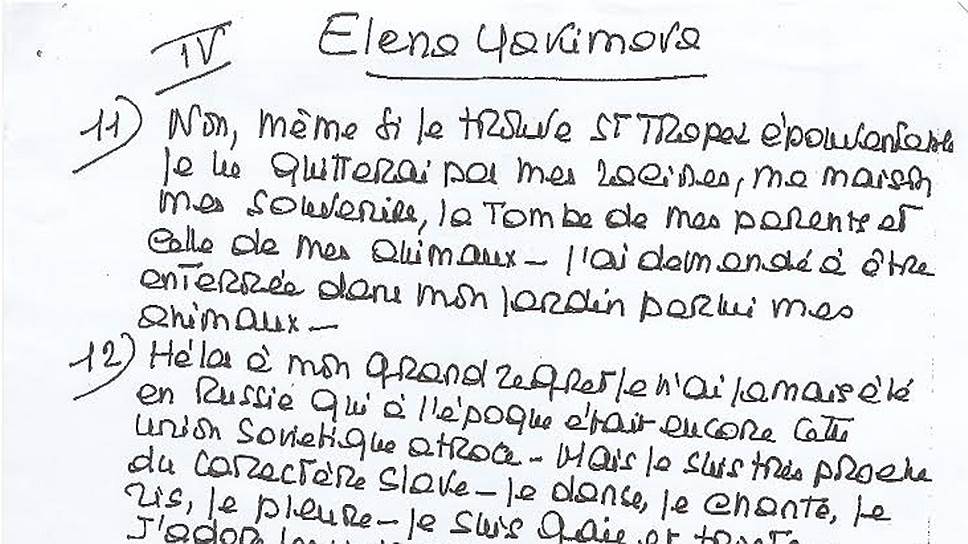 IV
Elena Yakimova
11) Non, même si je trouve ST Tropez épouvantable
je ne quitterai pas mes racines, ma maison,
mes souvenirs, la Tombe de mes parents et
celle de mes animaux - j'ai demandé à être
enTerrée dans mon jardin parmi mes
animaux -
12) Hélas à mon grand regret je n'ai jamais été
en Russie qui à l'époque était encore cette
union sovietique atroce - Mais je suis très proche
du caractère slave - je danse, je chante, je
ris, je pleure - je suis gaie et triste
J'adore